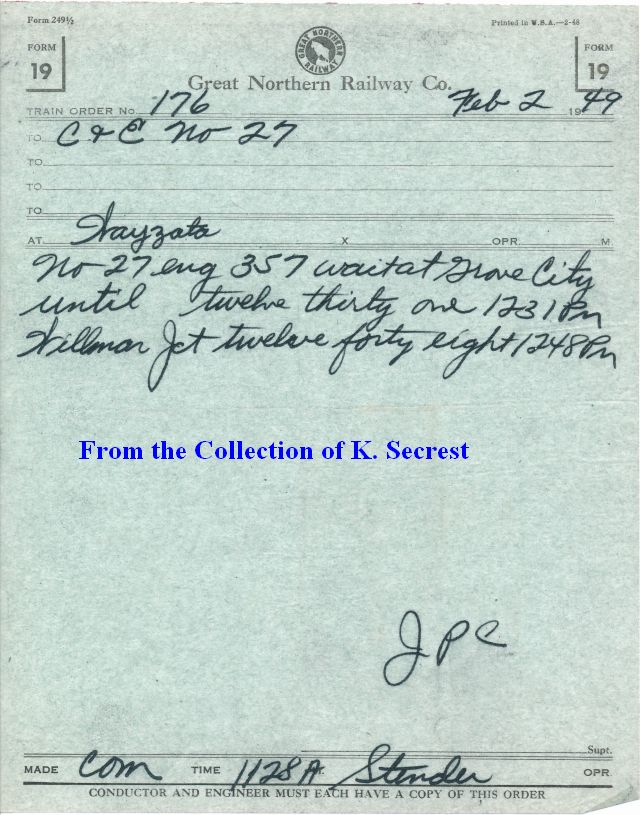 Form 249½
Printed in U.S.A.—2-48
FORM 19
GREAT NORTHERN RAILWAY
FORM 19
Great Northern Railway Co.
TRAIN ORDER No. 176 Feb 2 1949
TO C & E No 27
TO
TO
TO
AT Wayzata X OPR. M
No 27 eng 357 wait at Grove City
until twelve thirty one 1231 Pm
Willmar Jct twelve forty eight 1248 Pm
From the Collection of K. Secrest
JPC
Supt.
MADE Com TIME 1128 A Stender OPR.
CONDUCTOR AND ENGINEER MUST EACH HAVE A COPY OF THIS ORDER